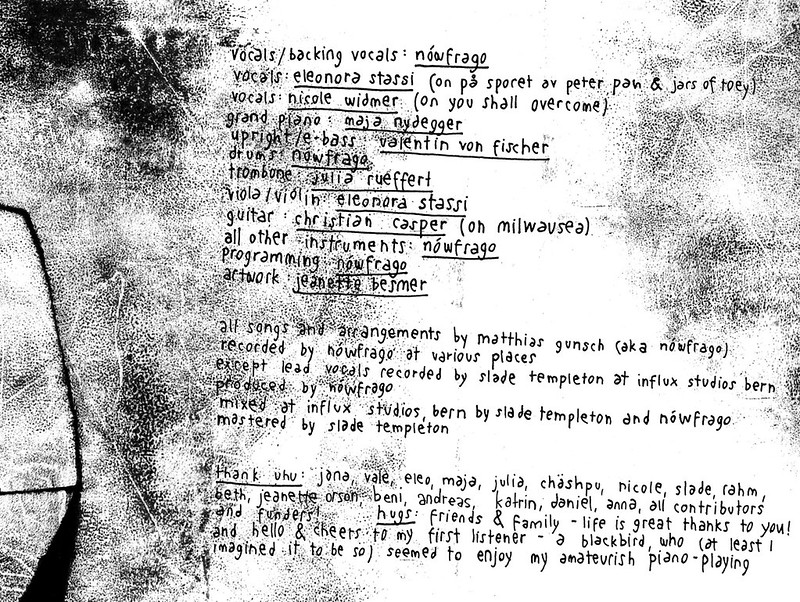 vocals/backing vocals: nówfrago
vocals: eleonora stassi (on på sporet av peter pan & jars of toey)
vocals: nicole widmer (on you shall overcome)
grand piano: maja nydegger
upright/e-bass: valentin von fischer
drums: nówfrago
trombone: julia rüeffert
viola/violin: eleonora stassi
guitar: christian casper (on milwausea)
all other instruments: nówfrago
programming: nówfrago
artwork: jeanette besmer
all songs and arrangements by matthias gunsch (aka nówfrago)
recorded by nówfrago at various places
except lead vocals recorded by slade templeton at influx studios bern
produced by nówfrago
mixed at influx studios, bern by slade templeton and nówfrago
mastered by slade templeton
thank uhu: jona, vale, eleo, maja, julia, chäshpu, nicole, slade, rahm,
beth, jeanette, orson, beni, andreas, katrin, daniel, anna, all contributors
and funders! hugs: friends & family - life is great thanks to you!
and hello & cheers to my first listener - a blackbird, who (at least i
imagined it to be so) seemed to enjoy my amateurish piano-playing